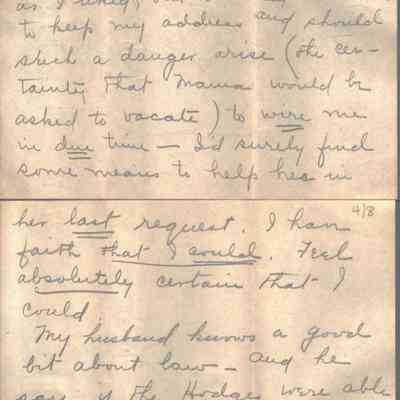 as I
to keep my address and should
such a danger arise (the cer-
tainty that Mama would be
asked to vacate) to wire me
in due time — I'd surely find
some means to help her in
4/8
her last request. I have
faith that I could. Feel
absolutely certain that I
could.
My husband knows a good
bit about law — and he
says if the Hodges were able